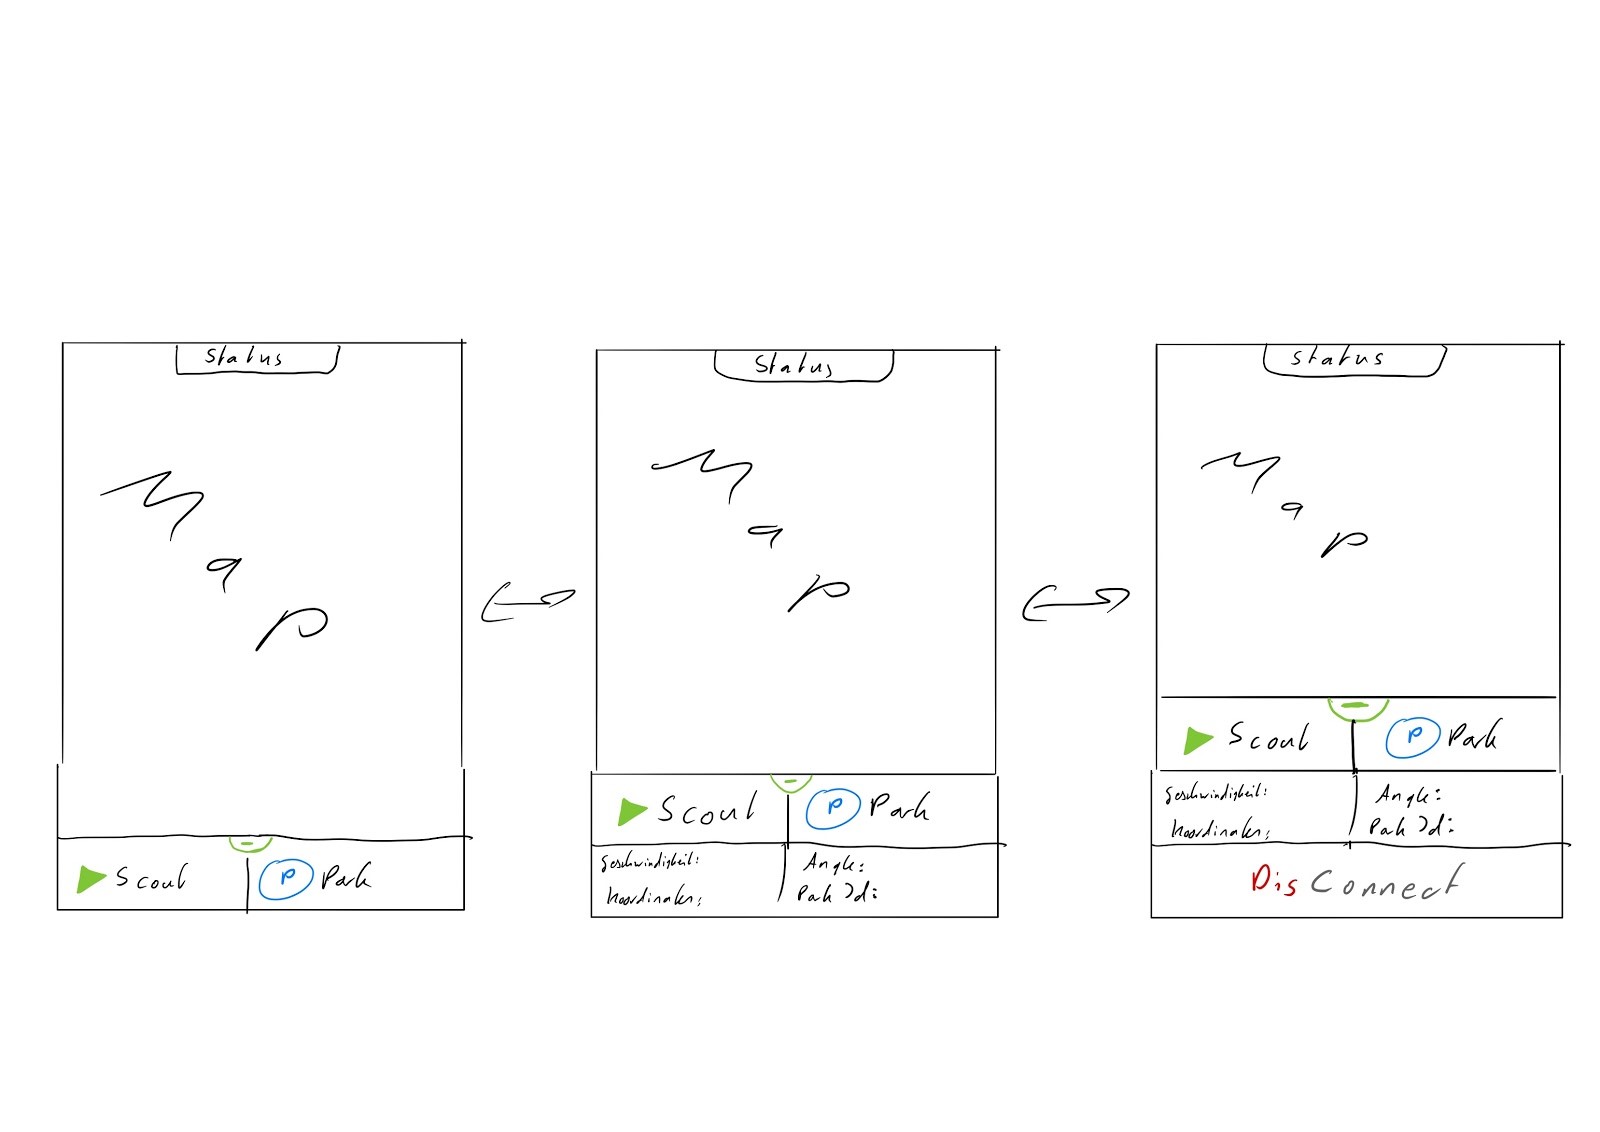 Status
Map
Scout
P Park
Status
Map
Scout
P Park
Geschwindigkeit:
Angle:
Koordinaten:
Park Id:
Status
Map
Scout
P Park
Geschwindigkeit:
Angle:
Koordinaten:
Park Id:
DisConnect